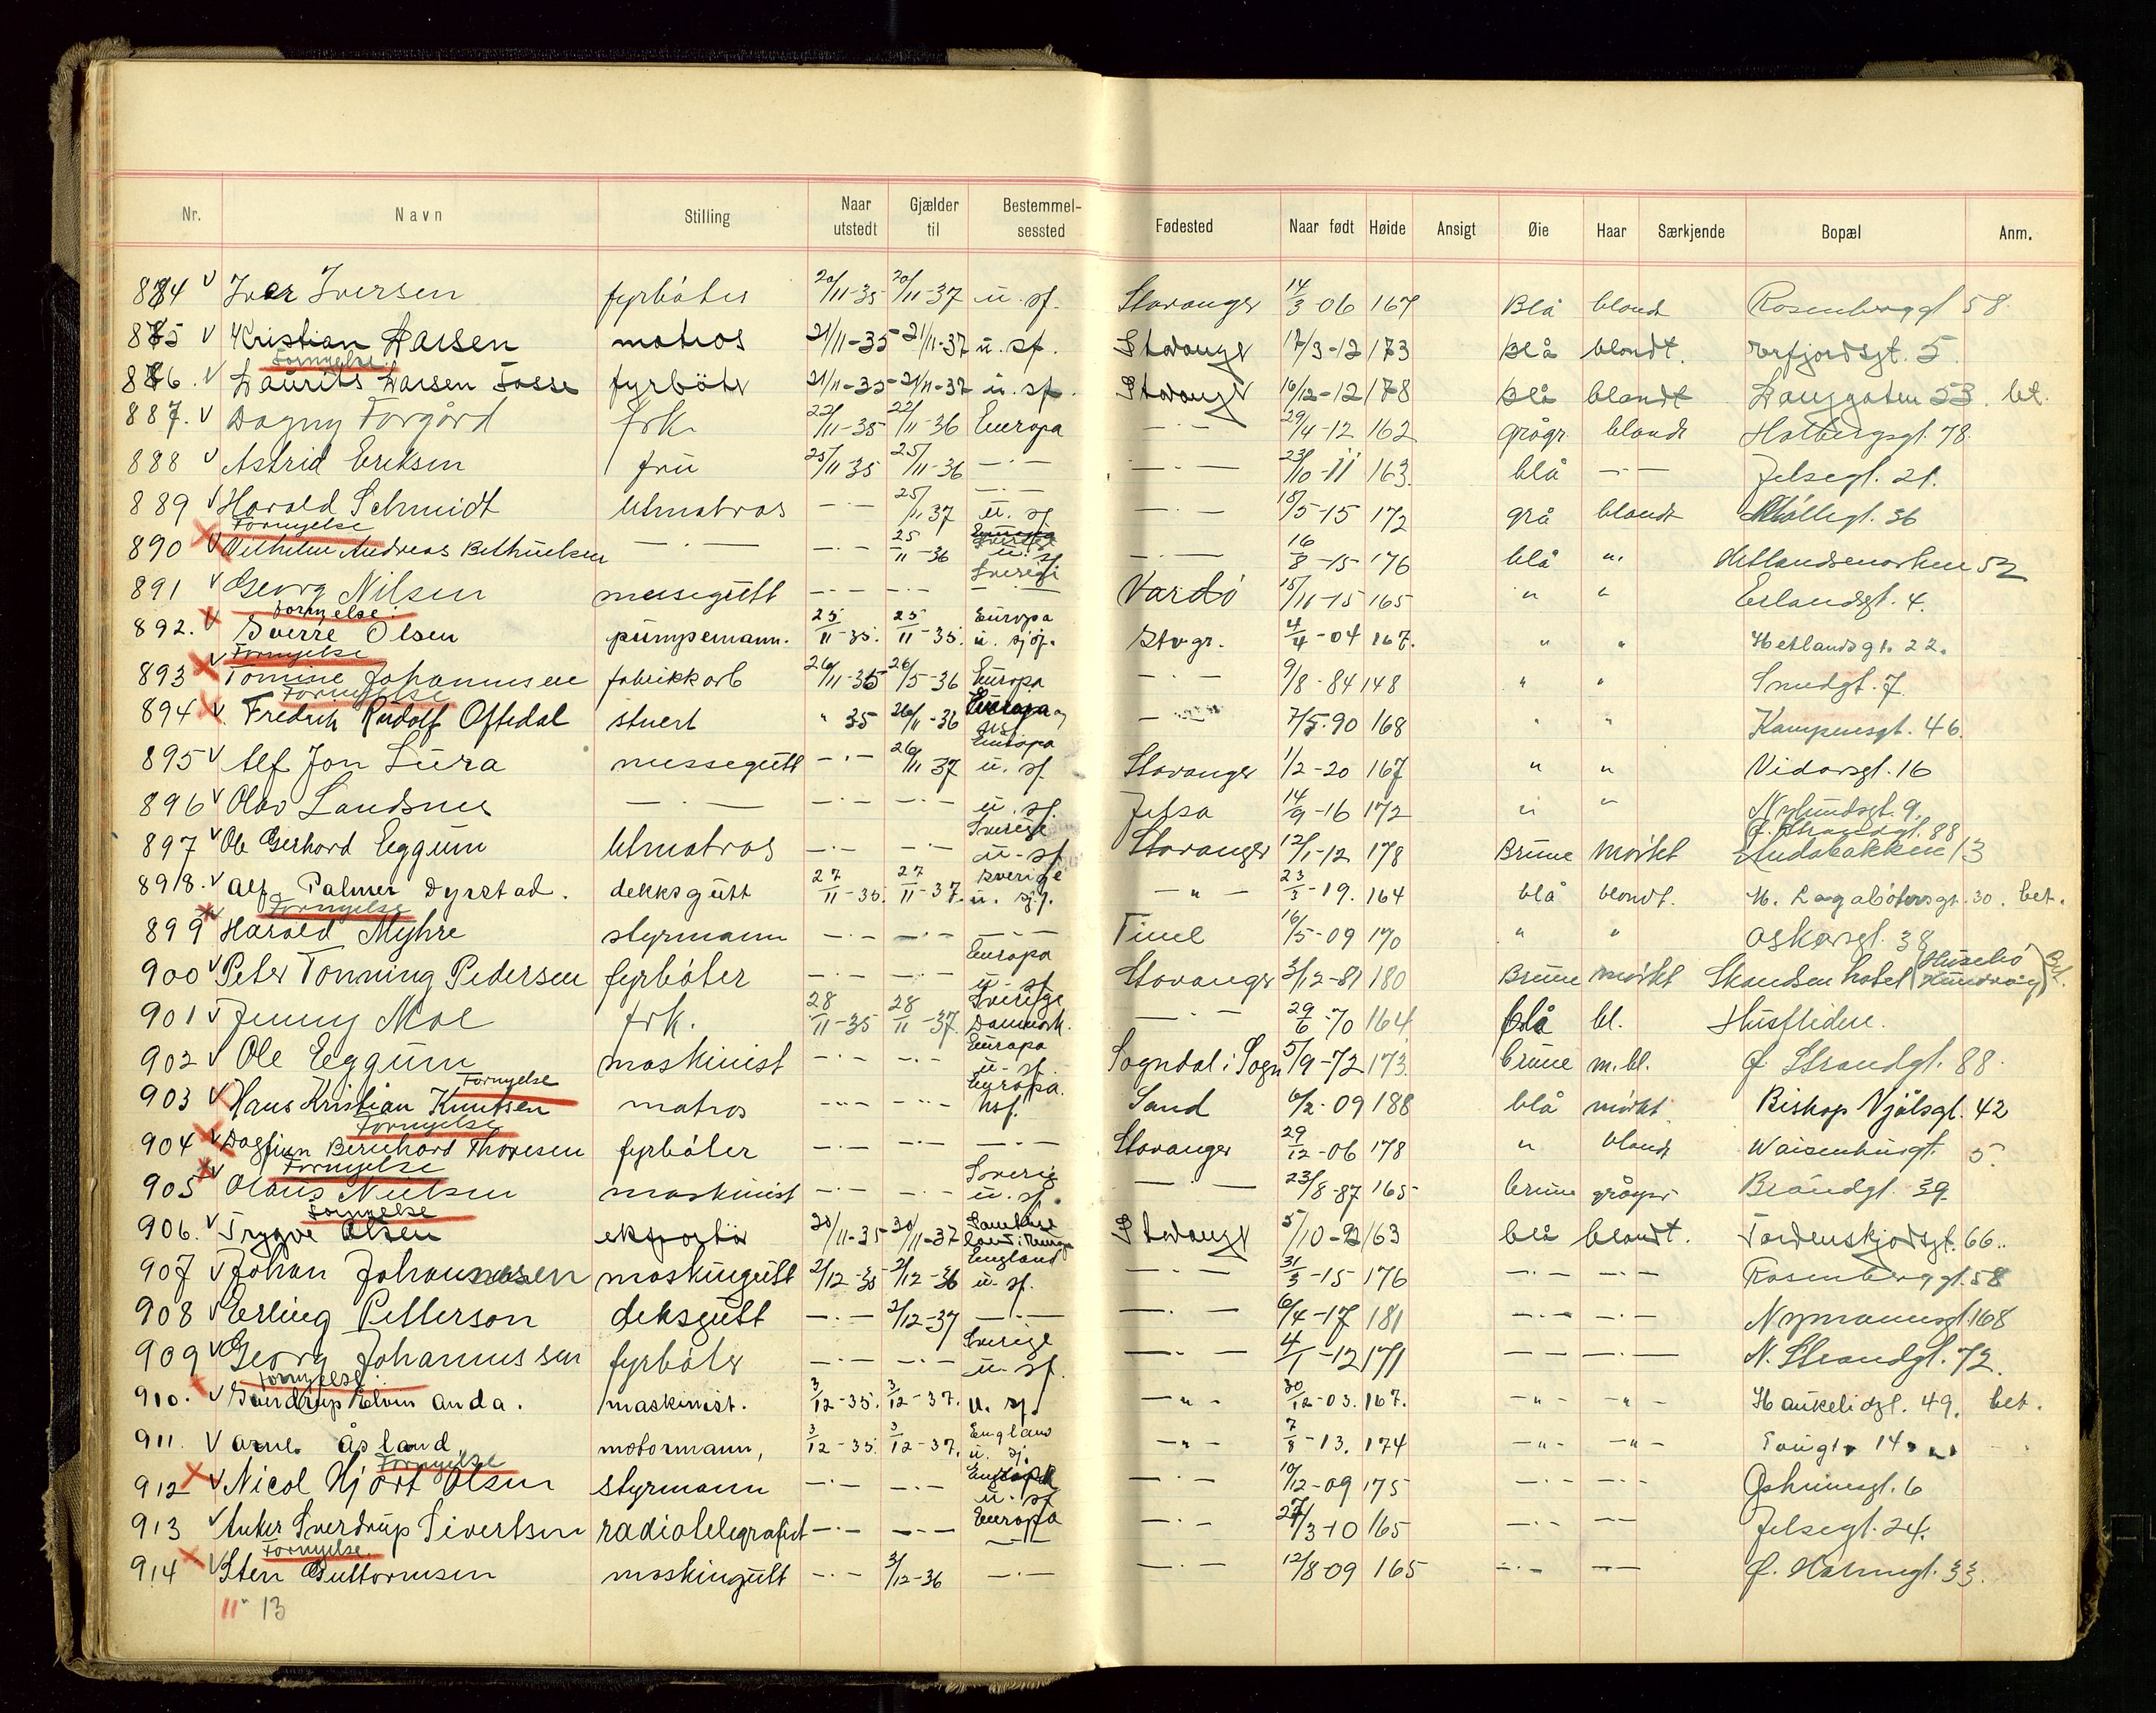 Nr. Navn Stilling Naar utstedt Gjælder til Bestemmelsessted Fødested Naar født Høide Ansigt Øie Haar Særkjende Bopæl Anm.
884 v Iver Iversen fyrbøter 20/11-35 20/11-37 u. sj. Stavanger 14/3-06 167 Blå blond Rosenberggt 58.
885 v Kristian Larsen matros 21/11-35 21/11-37 u. sj. Stavanger 17/3-12 173 blå blondt. 5
Fornyelse
886. v Laurits Larsen Fosse fyrbøter 21/11-35 21/11-37 u. sj. Stavanger 16/12-12 178 blå blondt Langgaten 53. bet.
887. v Dagny Torgård frk. 22/11-35 22/11-36 Europa —·— 29/4-12 162 grågr. blond Holbergsgt. 78.
888 v Astrid Eriksen fru 25/11 35 25/11-36 —·— —·— 23/10-11 163. blå —·— Jelsegt. 21.
889 v Harald Schmidt letmatros —·— 25/11 37 —·— u. sj. —·— 15/5-15 172 grå blondt Møllegt. 36
Fornyelse
890 v Vilhelm Andreas Bethuelsen —·— —·— 25/11-36 u. sj. —·— 16/8-15- 176 blå " Hetlandsmarken 52
891 v Georg Nilsen messegutt —·— —·— Sverige —·— Vardø 15/11-15 165 " " Erlandsgt. 4.
Fornyelse.
892. v Sverre Olsen pumpemann. 25/11-35. 25/11-35. Europa u. sjøf. Stvgr. 4/4-04 167. " " Hetlandsgt. 22.
Fornyelse
893 v Tomine Johannessen fabrikkarb 26/11-35 26/5-36 Europa —·— 9/8-84 148 " " Smedgt. 7.
Fornyelse
894 v. Fredrik Rudolf Oftedal stuert " 35 26/11-36 Europa og usj — 7/5.90 168 " " Kampensgt. 46.
895 v Alf Jon Lura messegutt —·— 26/11 37 Europa u. sj. Stavanger 1/2-20 167 " " Vidarsgt. 16
896 v Olav Landsnes —·— —·— —·— u. sj. Jelsa 14/9-16 172 " " Nylundsgt. 9.
897 v Ole Gerhard Eggum letmatros —·— —·— Sverige u. sj Stavanger 12/1-12 178 Brune mørket Ø. Strandgt. 88 13
898. v Alf Palmer Dyrstad. dekksgutt 27/11-35. 27/11-37. Sverige u. sj. —"— 23/3-19. 164 blå blondt. M. Lagabøtersgt. 30. bet.
Fornyelse
899 Harald Myhre styrmann —·— —·— —·— Time 16/5-09 170 " " Oskarsgt. 38
900 v Peter Tonning Pedersen fyrbøter —·— —·— Europa u. sj Stavanger 3/12-81 180 Brune mørkt Skandsen hotel (Husebø Hundvåg)
901 v Jenny Moe frk. 28/11-35 28/11-37 Sverige Danmark. —·— 29/6-70 164 blå bl. Husfliden.
902 v Ole Eggum maskinist —·— —·— Europa u. sj. Sogndal i Sogn 5/9-72 173. brune m.bl. Ø Strandgt. 88.
Fornyelse
903 v Hans Kristian Knutsen matros —"— —"— Europa. usj. Sand 6/2-09 188 blå mørkt. Biskop Njålsgt. 42
Fornyelse
904 v Dagfinn Bernhard Thoresen fyrbøter —·— —·— —·— Stavanger 29/12-06 178 " blond Waisenhusgt. 5.
Fornyelse
905 v Olaus Nielsen maskinist —·— —·— Sverige u. sj. —·— 23/8-87 165 brune gråspr Brandgt. 39.
Fornyelse
906. v Trygve Olsen eksportør 30/11-35 30/11-37 Samtlige land i Europa Stavanger 5/10-92 163 blå blondt. Tordenskjoldsgt. 66..
907 v Johan Johannesen maskingutt 2/12-35 2/12-36 England u. sj. —·— 31/3-15 176 —·— —·— Rosenberggt. 58
908 v Erling Petterson deksgutt —·— 2/12-37 —·— —·— 6/4-17 181 —·— —·— Nymannsgt. 168
909 v Georg Johannessen fyrbøter —·— —·— Sverige u. sj. —·— 4/1-12 171 —·— —·— N. Strandgt. 72.
Fornyelse
910. v Sverdrup Elvin Anda. maskinist. 3/12-35. 3/12-37. u. sj. —"— 30/12-03. 167. —"— —"— Haukeligt. 49. bet.
911. v Arne Åsland. motormann, 3/12-35. 3/12-37. England u. sj. —"— 7/8-13. 174 —"— —"— Taugt. 14.
Fornyelse
912 v Nicol Hjort Olsen styrmann —·— —·— u. sj —·— 10/12-09 175 —·— —·— 6
913 v Anker Sverdrup Sivertsen radiotelegrafist —·— —·— Europa —·— 27/3-10 165 —·— —·— Jelsegt. 24.
Fornyelse
914 v Sten Guttormsen maskingutt —·— 3/12-36 —·— —·— 12/8-09 165 —·— —·— Ø. Holmegt. 33.
11 13